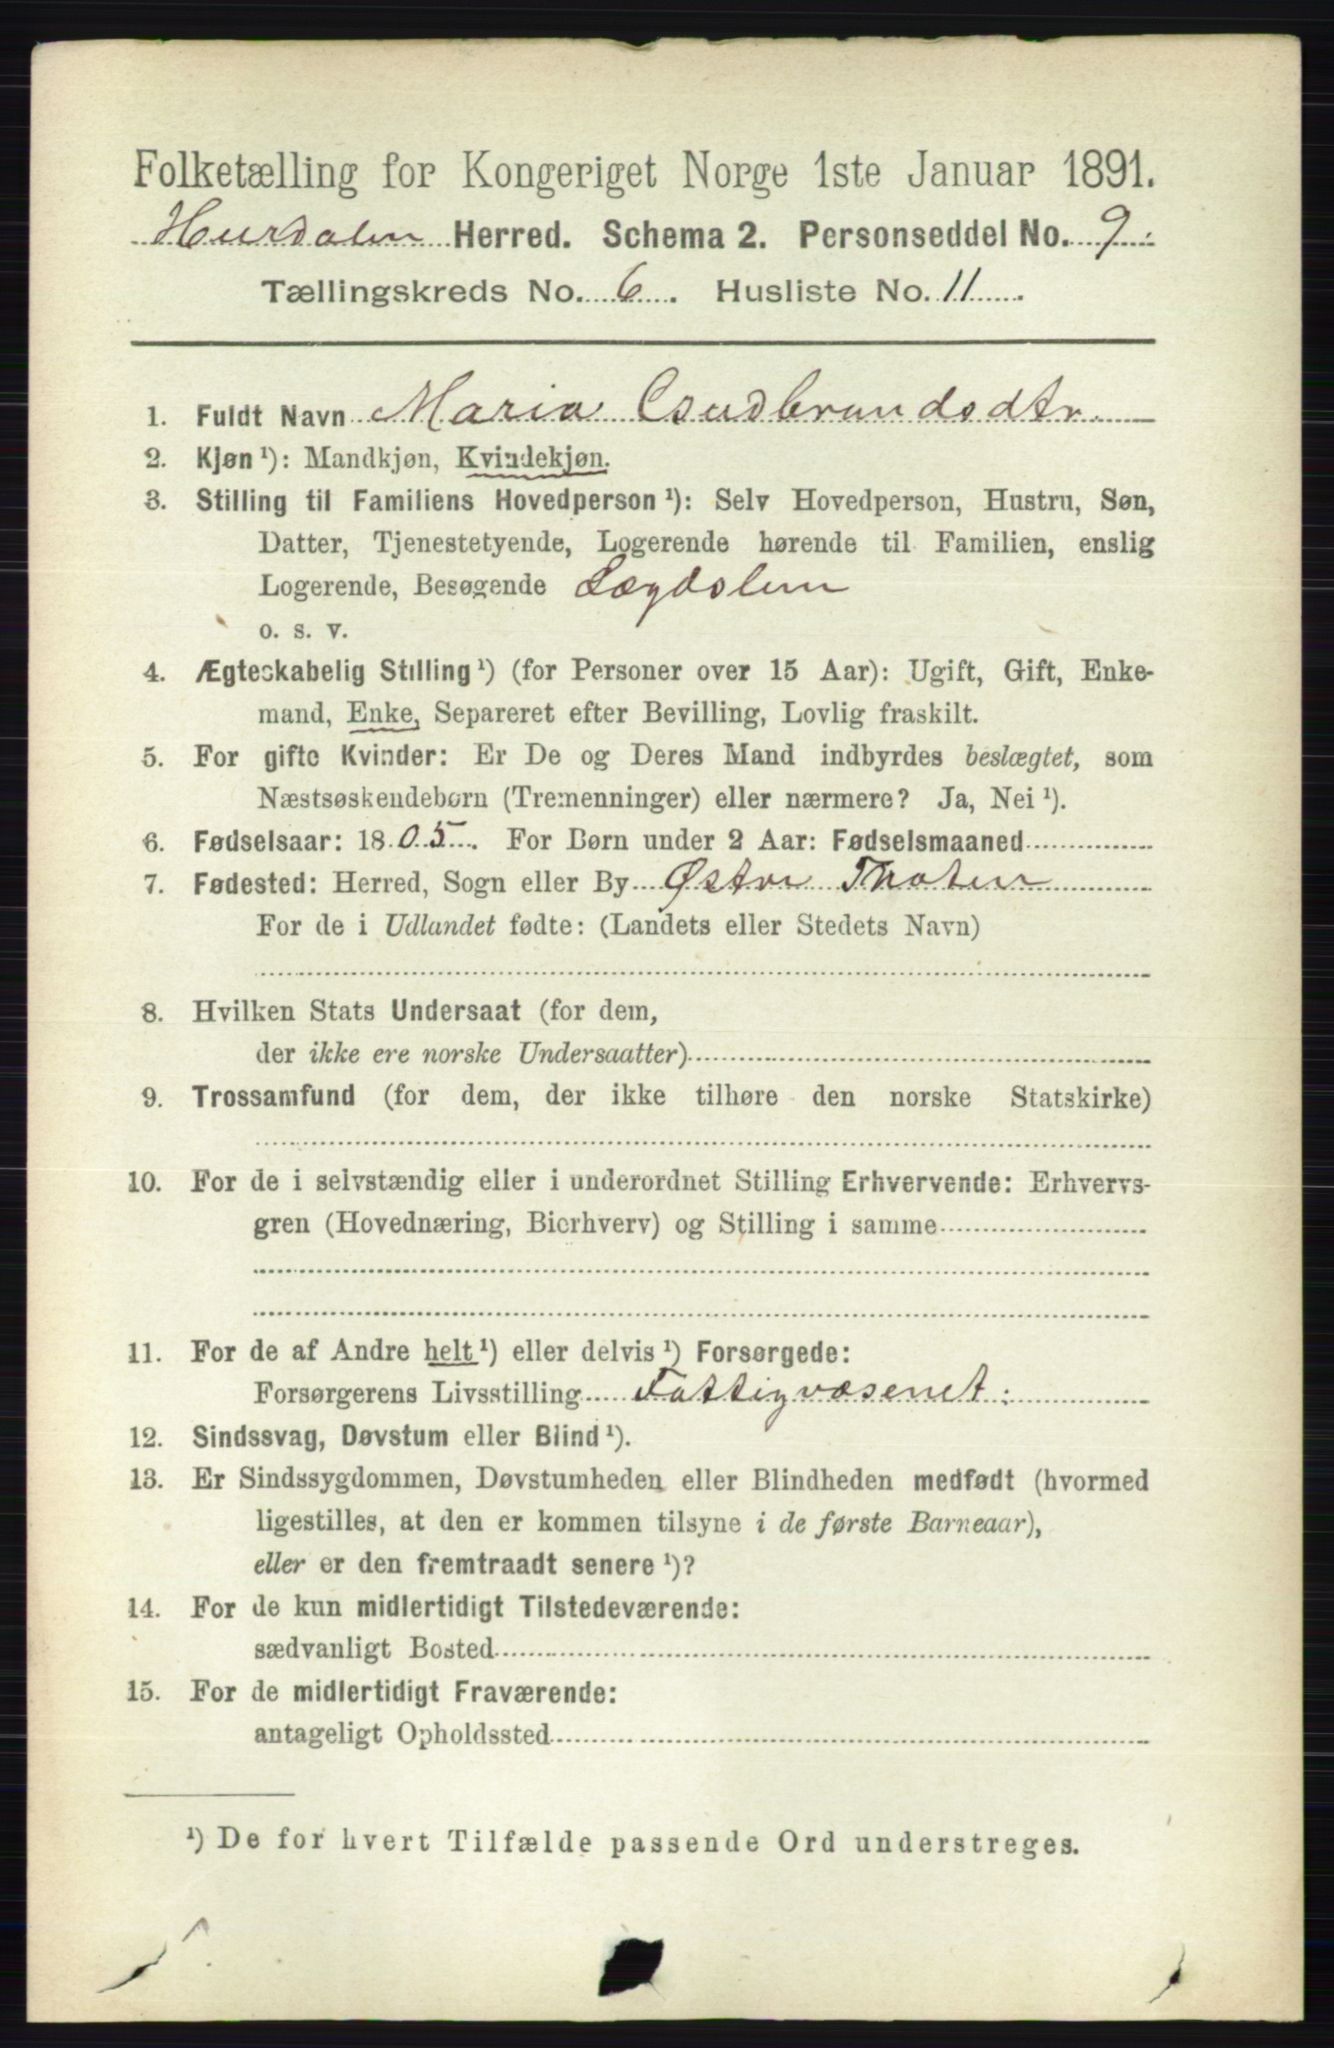 Folketælling for Kongeriget Norge 1ste Januar 1891.
Hurdalen Herred. Schema 2. Personseddel No. 9.
Tællingskreds No. 6. Husliste No. 11
1. Fuldt Navn Maria Gudbrandsdtr.
2. Kjøn ¹): Mandkjøn, Kvindekjøn.
3. Stilling til Familiens Hovedperson ¹): Selv Hovedperson, Hustru, Søn,
Datter, Tjenestetyende, Logerende hørende til Familien, enslig
Logerende, Besøgende Lægdslem
o. s. v.
4. Ægteskabelig Stilling ¹) (for Personer over 15 Aar): Ugift, Gift, Enke-
mand, Enke, Separeret efter Bevilling, Lovlig fraskilt.
5. For gifte Kvinder: Er De og Deres Mand indbyrdes beslægtet, som
Næstsøskendebørn (Tremenninger) eller nærmere? Ja, Nei ¹).
6. Fødselsaar: 1805. For Børn under 2 Aar: Fødselsmaaned
7. Fødested: Herred, Sogn eller By Østre Thoten
For de i Udlandet fødte: (Landets eller Stedets Navn)
8. Hvilken Stats Undersaat (for dem,
der ikke ere norske Undersaatter)
9. Trossamfund (for dem, der ikke tilhøre den norske Statskirke)
10. For de i selvstændig eller i underordnet Stilling Erhvervende: Erhvervs-
gren (Hovednæring, Bierhverv) og Stilling i samme
11. For de af Andre helt ¹) eller delvis ¹) Forsørgede:
Forsørgerens Livsstilling Fattigvæsenet.
12. Sindssvag, Døvstum eller Blind ¹).
13. Er Sindssygdommen, Døvstumheden eller Blindheden medfødt (hvormed
ligestilles, at den er kommen tilsyne i de første Barneaar),
eller er den fremtraadt senere ¹)?
14. For de kun midlertidigt Tilstedeværende:
sædvanligt Bosted
15. For de midlertidigt Fraværende:
antageligt Opholdssted
¹) De for hvert Tilfælde passende Ord understreges.